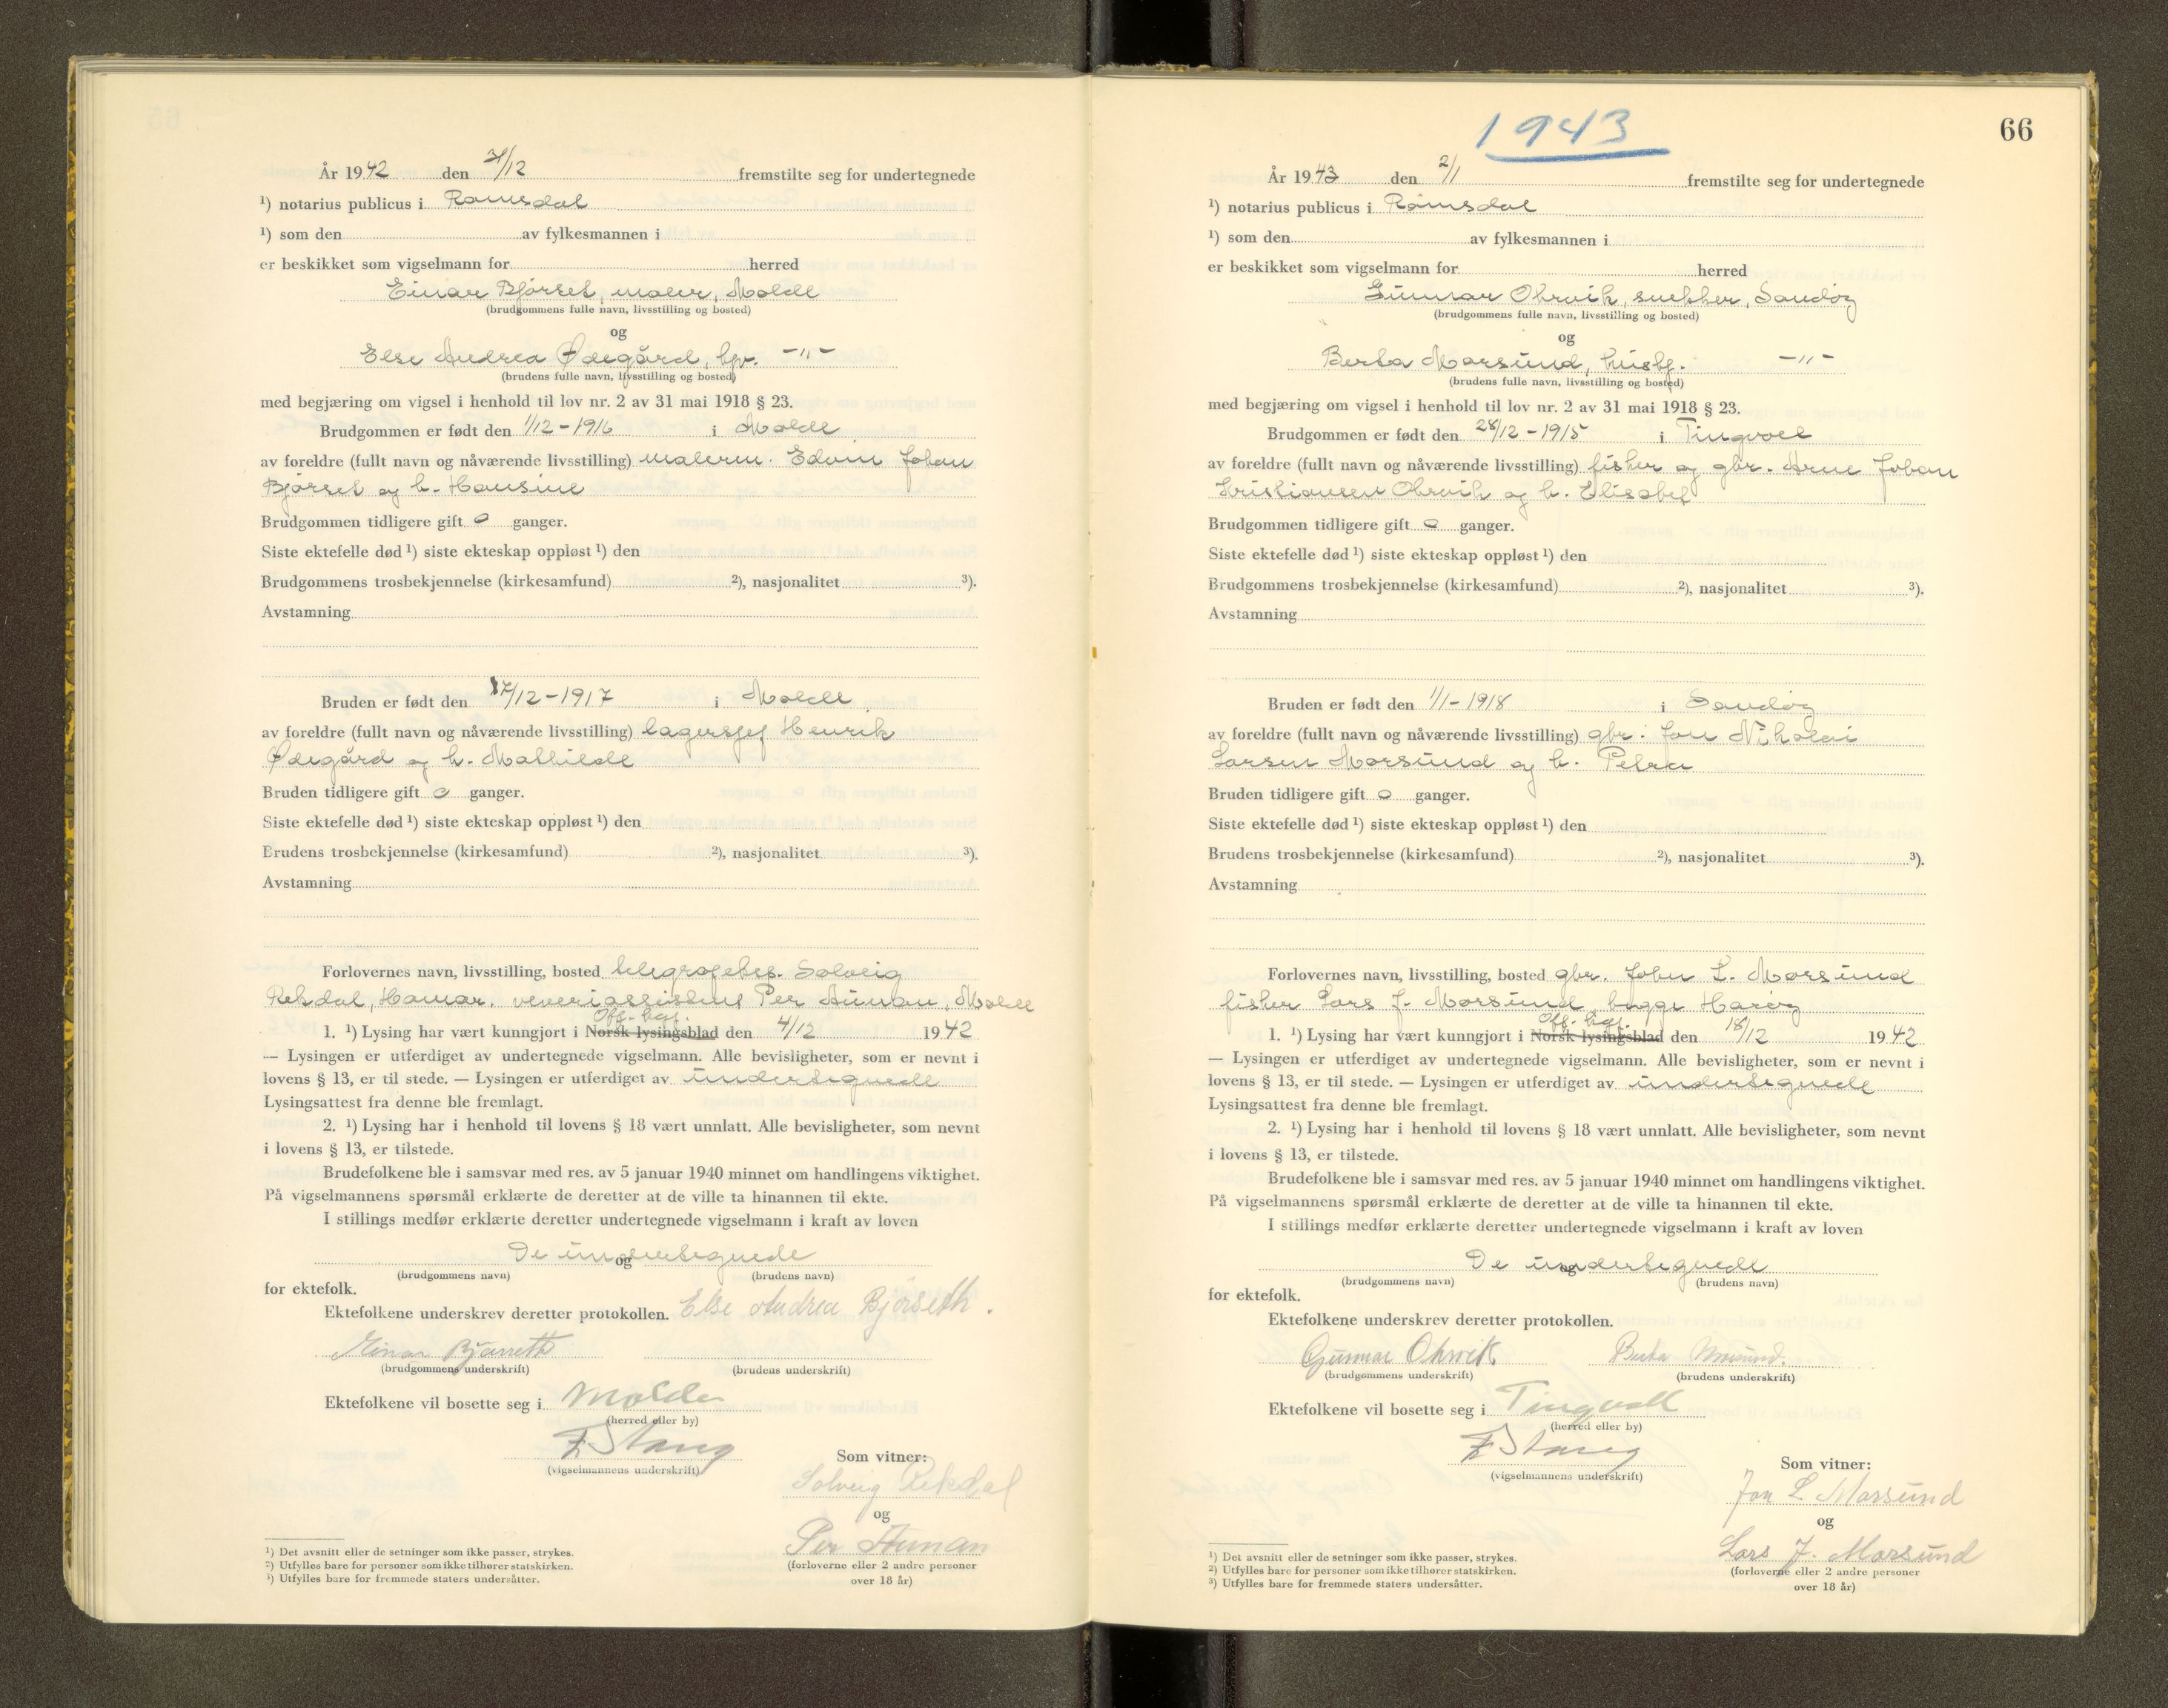 År 1942 den 31/12 fremstilte seg for undertegnede
¹) notarius publicus i Romsdal
¹) som den av fylkesmannen i
er beskikket som vigselmann for herred
Einar Bjørset, maler, Molde
(brudgommens fulle navn, livsstilling og bosted)
og
Else Andrea Ødegård, hv. -"-
(brudens fulle navn, livsstilling og bosted)
med begjæring om vigsel i henhold til lov nr. 2 av 31 mai 1918 § 23.
Brudgommen er født den 1/12-1916 i Molde
av foreldre (fullt navn og nåværende livsstilling) malerm. Edvin Johan
Bjørset og h. Hansine
Brudgommen tidligere gift 0 ganger.
Siste ektefelle død ¹) siste ekteskap oppløst ¹) den
Brudgommens trosbekjennelse (kirkesamfund) ²), nasjonalitet ³).
Avstamning
Bruden er født den 17/12-1917 i Molde
av foreldre (fullt navn og nåværende livsstilling) lagersjef Henrik
Ødegård og h. Mathilde
Bruden tidligere gift 0 ganger.
Siste ektefelle død ¹) siste ekteskap oppløst ¹) den
Brudens trosbekjennelse (kirkesamfund) ²), nasjonalitet ³).
Avstamning
Forlovernes navn, livsstilling, bosted telegrafbes. Solveig
Rekdal, Hamar. veveriassistent Per Aunan, Molde
Off. kgj.
1. ¹) Lysing har vært kunngjort i Norsk lysingsblad den 4/12 1942
— Lysingen er utferdiget av undertegnede vigselmann. Alle bevisligheter, som er nevnt i
lovens § 13, er til stede. — Lysingen er utferdiget av undertegnede
Lysingsattest fra denne ble fremlagt.
2. ¹) Lysing har i henhold til lovens § 18 vært unnlatt. Alle bevisligheter, som nevnt
i lovens § 13, er tilstede.
Brudefolkene ble i samsvar med res. av 5 januar 1940 minnet om handlingens viktighet.
På vigselmannens spørsmål erklærte de deretter at de ville ta hinannen til ekte.
I stillings medfør erklærte deretter undertegnede vigselmann i kraft av loven
De undertegnede
og
(brudgommens navn) (brudens navn)
for ektefolk.
Ektefolkene underskrev deretter protokollen. Else Andrea Bjørseth.
Einar Bjørseth
(brudgommens underskrift) (brudens underskrift)
Ektefolkene vil bosette seg i Molde
(herred eller by)
F Stang
(vigselmannens underskrift)
Som vitner:
Solveig Rekdal
og
Per Aunan
(forloverne eller 2 andre personer
over 18 år)
¹) Det avsnitt eller de setninger som ikke passer, strykes.
²) Utfylles bare for personer som ikke tilhører statskirken.
³) Utfylles bare for fremmede staters undersåtter.
1943
66
År 1943 den 2/1 fremstilte seg for undertegnede
¹) notarius publicus i Romsdal
¹) som den av fylkesmannen i
er beskikket som vigselmann for herred
Gunnar Ohrvik, snekker, Sandøy
(brudgommens fulle navn, livsstilling og bosted)
og
Berta Morsund, hush. -"-
(brudens fulle navn, livsstilling og bosted)
med begjæring om vigsel i henhold til lov nr. 2 av 31 mai 1918 § 23.
Brudgommen er født den 28/12-1915 i Tingvoll
av foreldre (fullt navn og nåværende livsstilling) fisker og gbr. Arne Johan
Kristiansen Ohrvik og h. Elisabet
Brudgommen tidligere gift 0 ganger.
Siste ektefelle død ¹) siste ekteskap oppløst ¹) den
Brudgommens trosbekjennelse (kirkesamfund) ²), nasjonalitet ³).
Avstamning
Bruden er født den 1/1-1918 i Sandøy
av foreldre (fullt navn og nåværende livsstilling) gbr. Jon Nikolai
Larsen Morsund og h. Petra
Bruden tidligere gift 0 ganger.
Siste ektefelle død ¹) siste ekteskap oppløst ¹) den
Brudens trosbekjennelse (kirkesamfund) ²), nasjonalitet ³).
Avstamning
Forlovernes navn, livsstilling, bosted gbr. John L. Morsund
fisker Lars J. Morsund, begge Harøy
Off. kgj.
1. ¹) Lysing har vært kunngjort i Norsk lysingsblad den 18/12 1942
— Lysingen er utferdiget av undertegnede vigselmann. Alle bevisligheter, som er nevnt i
lovens § 13, er til stede. — Lysingen er utferdiget av undertegnede
Lysingsattest fra denne ble fremlagt.
2. ¹) Lysing har i henhold til lovens § 18 vært unnlatt. Alle bevisligheter, som nevnt
i lovens § 13, er tilstede.
Brudefolkene ble i samsvar med res. av 5 januar 1940 minnet om handlingens viktighet.
På vigselmannens spørsmål erklærte de deretter at de ville ta hinannen til ekte.
I stillings medfør erklærte deretter undertegnede vigselmann i kraft av loven
De undertegnede
og
(brudgommens navn) (brudens navn)
for ektefolk.
Ektefolkene underskrev deretter protokollen.
Gunnar Ohrvik Berta Morsund.
(brudgommens underskrift) (brudens underskrift)
Ektefolkene vil bosette seg i Tingvoll
(herred eller by)
F Stang
(vigselmannens underskrift)
Som vitner:
Jon L Morsund
og
Lars J. Morsund
(forloverne eller 2 andre personer
over 18 år)
¹) Det avsnitt eller de setninger som ikke passer, strykes.
²) Utfylles bare for personer som ikke tilhører statskirken.
³) Utfylles bare for fremmede staters undersåtter.